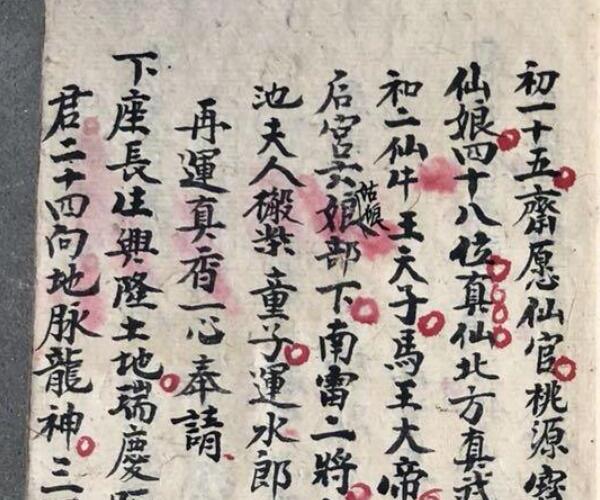 初一十五齋愿仙官桃源
仙娘四十八位真仙北方真武
和二仙牛王天子馬王大帝
后宮六娘部下南雷二將
池夫人搬柴童子運水郎
再運真香一心奉請
下座長生興隆土地瑞慶
君二十四向地脉龍神三